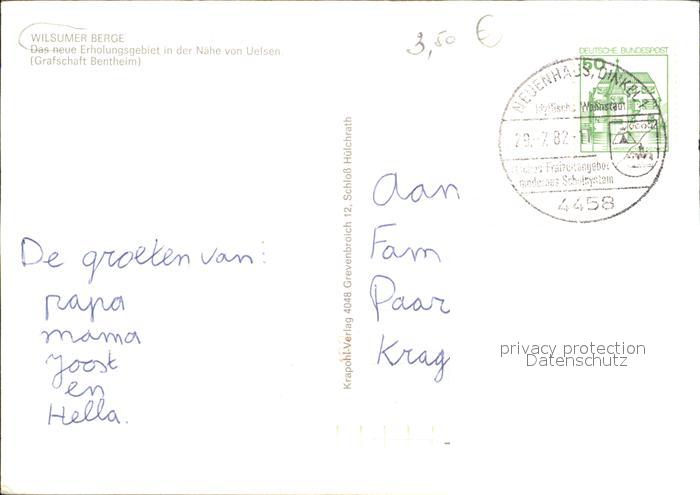 WILSUMER BERGE
Das neue Erholungsgebiet in der Nähe von Uelsen
(Grafschaft Bentheim)
3,50 €
DEUTSCHE BUNDESPOST
50
NEUENHAUS, DINKEL
Idyllische Wohnstadt
29.-7.82
modernes Schulsystem
4458
De groeten van:
papa
mama
Joost
en
Hella.
Krapohl-Verlag 4048 Grevenbroich 12, Schloß Hülchrath
Aan
Fam
Paar
Krag
privacy protection
Datenschutz